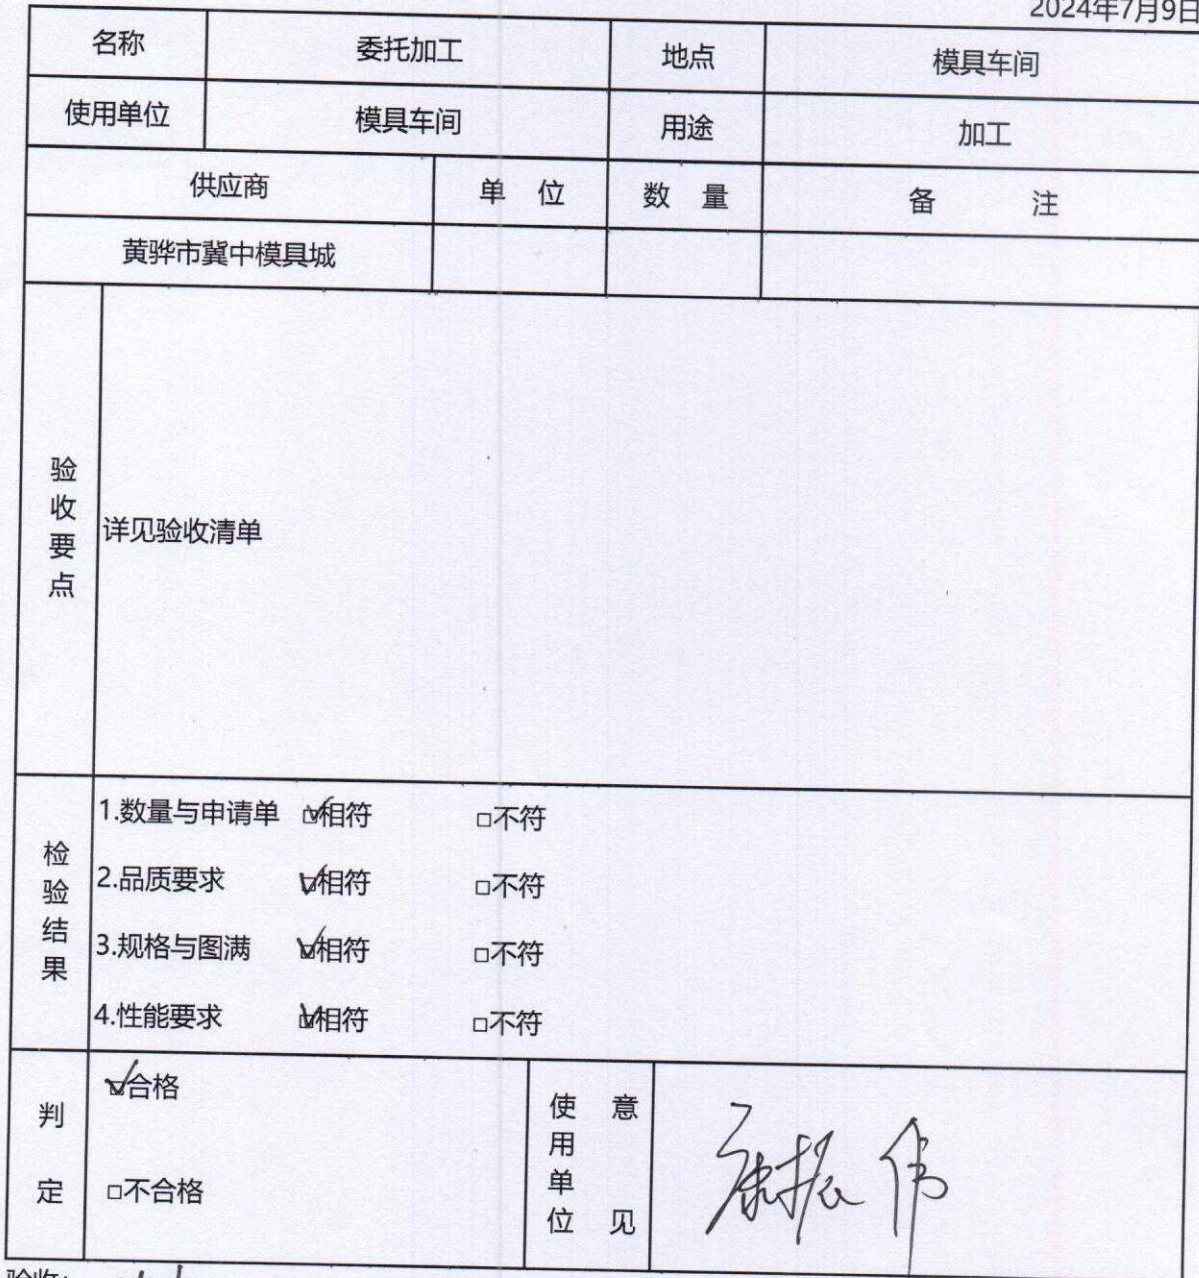 2024年7月9日
名称 委托加工 地点 模具车间
使用单位 模具车间 用途 加工
供应商 单 位 数 量 备 注
黄骅市冀中模具城
验收要点
详见验收清单
检验结果
1.数量与申请单 ☑相符 □不符
2.品质要求 ☑相符 □不符
3.规格与图满 ☑相符 □不符
4.性能要求 ☑相符 □不符
判定
☑合格
□不合格
使用单位意见
康振伟
验收: